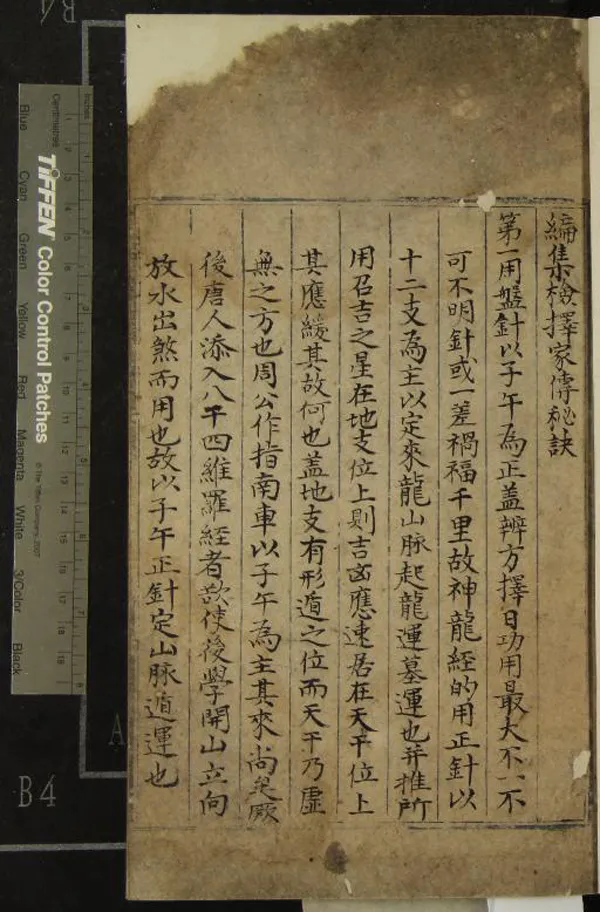 編集檢擇家傳秘訣
第一用盤針以子午為正盖辨方擇日功用最大不不
可不明針或一差禍福千里故神龍經的用正針以
十二支為主以定來龍山脉起龍運墓運也并推所
用召吉之星在地支位上則吉凶應速居在天干位上
其應緩其故何也盖地支有形遁之位而天干乃虛
無之方也周公作指南車以子午為主其來尚矣厥
後唐人添入八干四維羅經者欲使後學開山立向
放水出煞而用也故以子午正針定山脉遁運也
Inches
Centimetres
TIFFEN Color Control Patches
© The Tiffen Company, 2007
Blue
Cyan
Green
Yellow
Red
Magenta
White
3/Color
Black
B4
A
B4